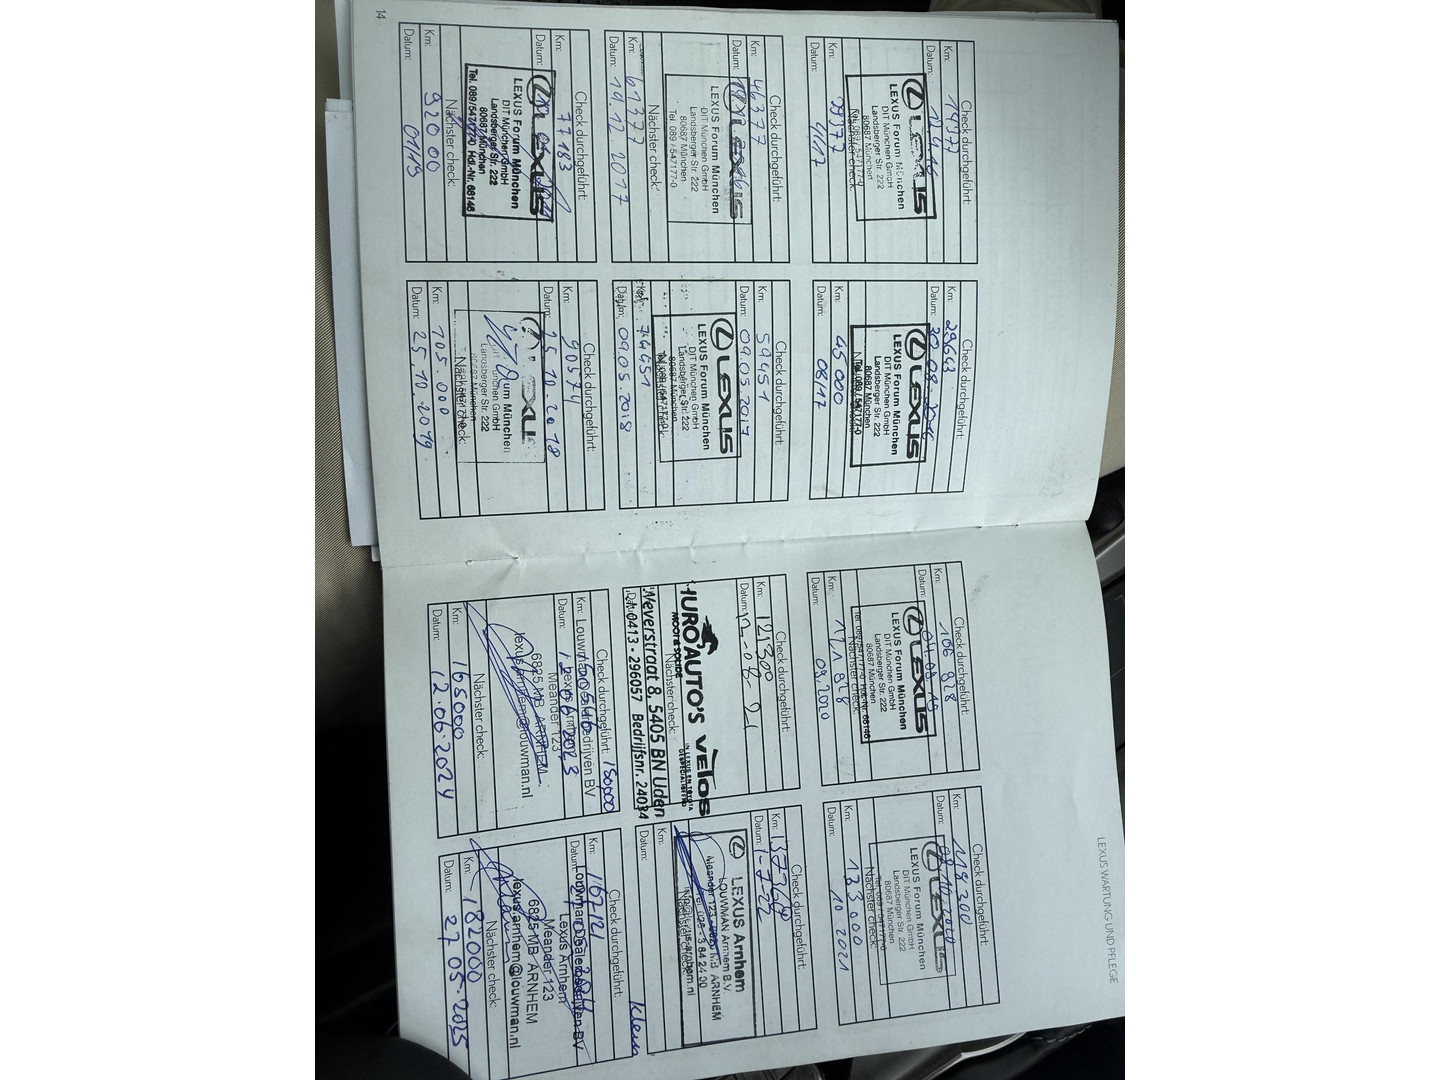 LEXUS WARTUNG UND PFLEGE
Check durchgeführt:
Km: 14977
Datum:
LEXUS
LEXUS Forum München
DIT München GmbH
Landsberger Str. 222
80687 München
Nächster check:
Km: 29977
Datum: 4/17
Check durchgeführt:
Km: 29643
Datum: 30.08.2016
LEXUS
LEXUS Forum München
DIT München GmbH
Landsberger Str. 222
80687 München
Tel. 089/547177-0
Km: 45000
Datum: 08/17
Check durchgeführt:
Km: 46377
Datum:
LEXUS
LEXUS Forum München
DIT München GmbH
Landsberger Str. 222
80687 München
Tel 089 / 547177-0
Nächster check:
Km: 61377
Datum: 19.12.2017
Check durchgeführt:
Km: 59451
Datum: 09.05.2017
LEXUS
LEXUS Forum München
DIT München GmbH
Landsberger Str. 222
80687 München
Tel. 089/547177-0
Nächster check:
Km: 74451
Datum: 09.05.2018
Check durchgeführt:
Km: 77183
Datum:
LEXUS
LEXUS Forum München
DIT München GmbH
Landsberger Str. 222
80687 München
Tel. 089/547177-0 Hdl.-Nr. 68146
Nächster check:
Km: 92000
Datum: 01/19
Check durchgeführt:
Km: 90574
Datum: 25.10.2018
LEXUS
DIT München GmbH
Landsberger Str. 222
80687 München
Nächster check:
Km: 105.000
Datum: 25.10.2019
14
Check durchgeführt:
Km: 106 928
Datum: 04.09.19
LEXUS
LEXUS Forum München
DIT München GmbH
Landsberger Str. 222
80687 München
Nächster check:
Km: 121 928
Datum: 09.2020
Check durchgeführt:
Km: 119 200
Datum:
LEXUS
LEXUS Forum München
DIT München GmbH
Landsberger Str. 222
80687 München
Nächster check:
Km: 133.000
Datum: 10.2021
Check durchgeführt:
Km: 121300
Datum: 12-08-21
HURO AUTO'S VEIOS
MOOI & SOLIDE
IN LEXUS EN TOYOTA
GESPECIALISEERD
Nächster check:
Weverstraat 8, 5405 BN Uden
0413 - 296057 Bedrijfsnr. 24034
Check durchgeführt:
Km: 137364
Datum: 1-7-22
LEXUS Arnhem
LOUWMAN Arnhem B.V.
Meander 123 - 6825 MB ARNHEM
Nächster check:
Km:
Datum:
Klein
Check durchgeführt: 150000
Km:
Louwman Bedrijven BV
Datum: 12.06.2023
Lexus Arnhem
Meander 123
6825 MB ARNHEM
lexus.arnhem@louwman.nl
Nächster check:
Km: 165000
Datum: 12.06.2024
Check durchgeführt:
Km: 167121
Datum:
Louwman Dealerbedrijven BV
Lexus Arnhem
Meander 123
6825 MB ARNHEM
lexus.arnhem@louwman.nl
Nächster check:
Km: 182000
Datum: 27.05.2025